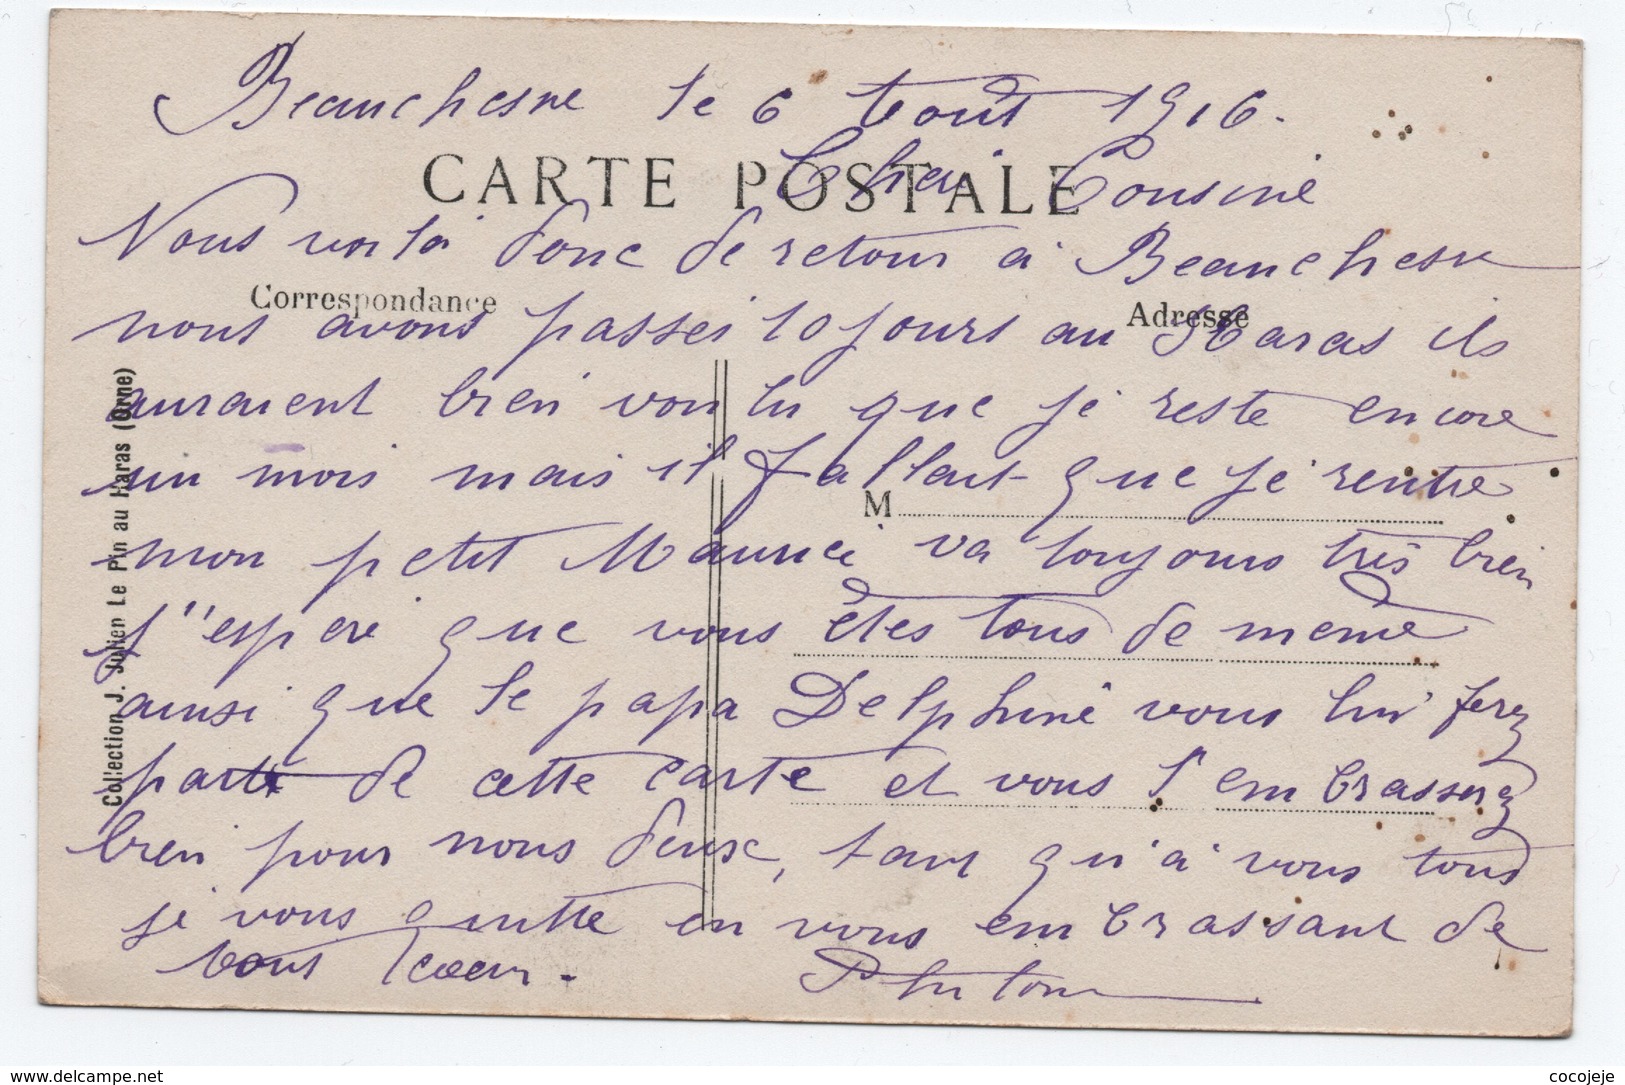 Beauchesne le 6 Août 1916.
CARTE POSTALE
Cher Cousine
Nous voilà donc de retour à Beauchesne
Correspondance
Adresse
nous avons passer 10 jours au Haras ils
auraient bien voulu que je reste encore
un mois mais il fallait que je rentre
M
mon petit Maurice va toujours très bien
j'espère que vous êtes tous de même
ainsi que le papa Delphine vous lui ferez
part de cette carte et vous l'embrasserez
bien pour nous deux, tant qu'à vous tous
je vous quitte en vous embrassant de
tous cœur.
Collection J. Julien Le Pin au Haras (Orne)
www.delcampe.net
cocojeje